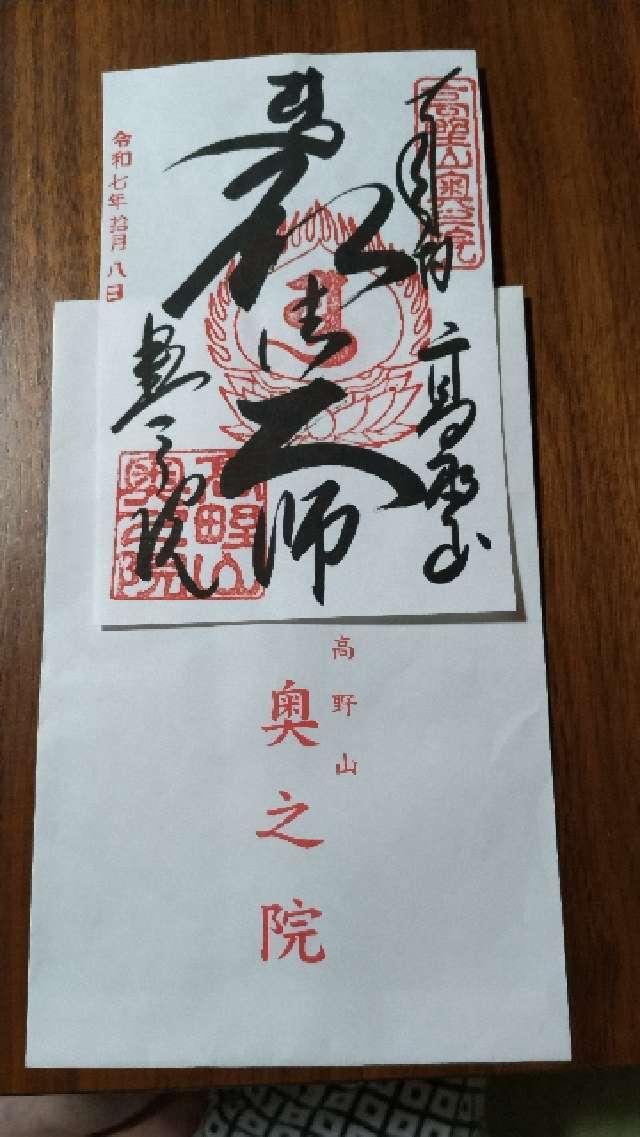 高野山奥之院
奉拝
高野山
弘法大師
奥之院
令和七年拾月八日
高野山
奥之院
高野山
奥之院